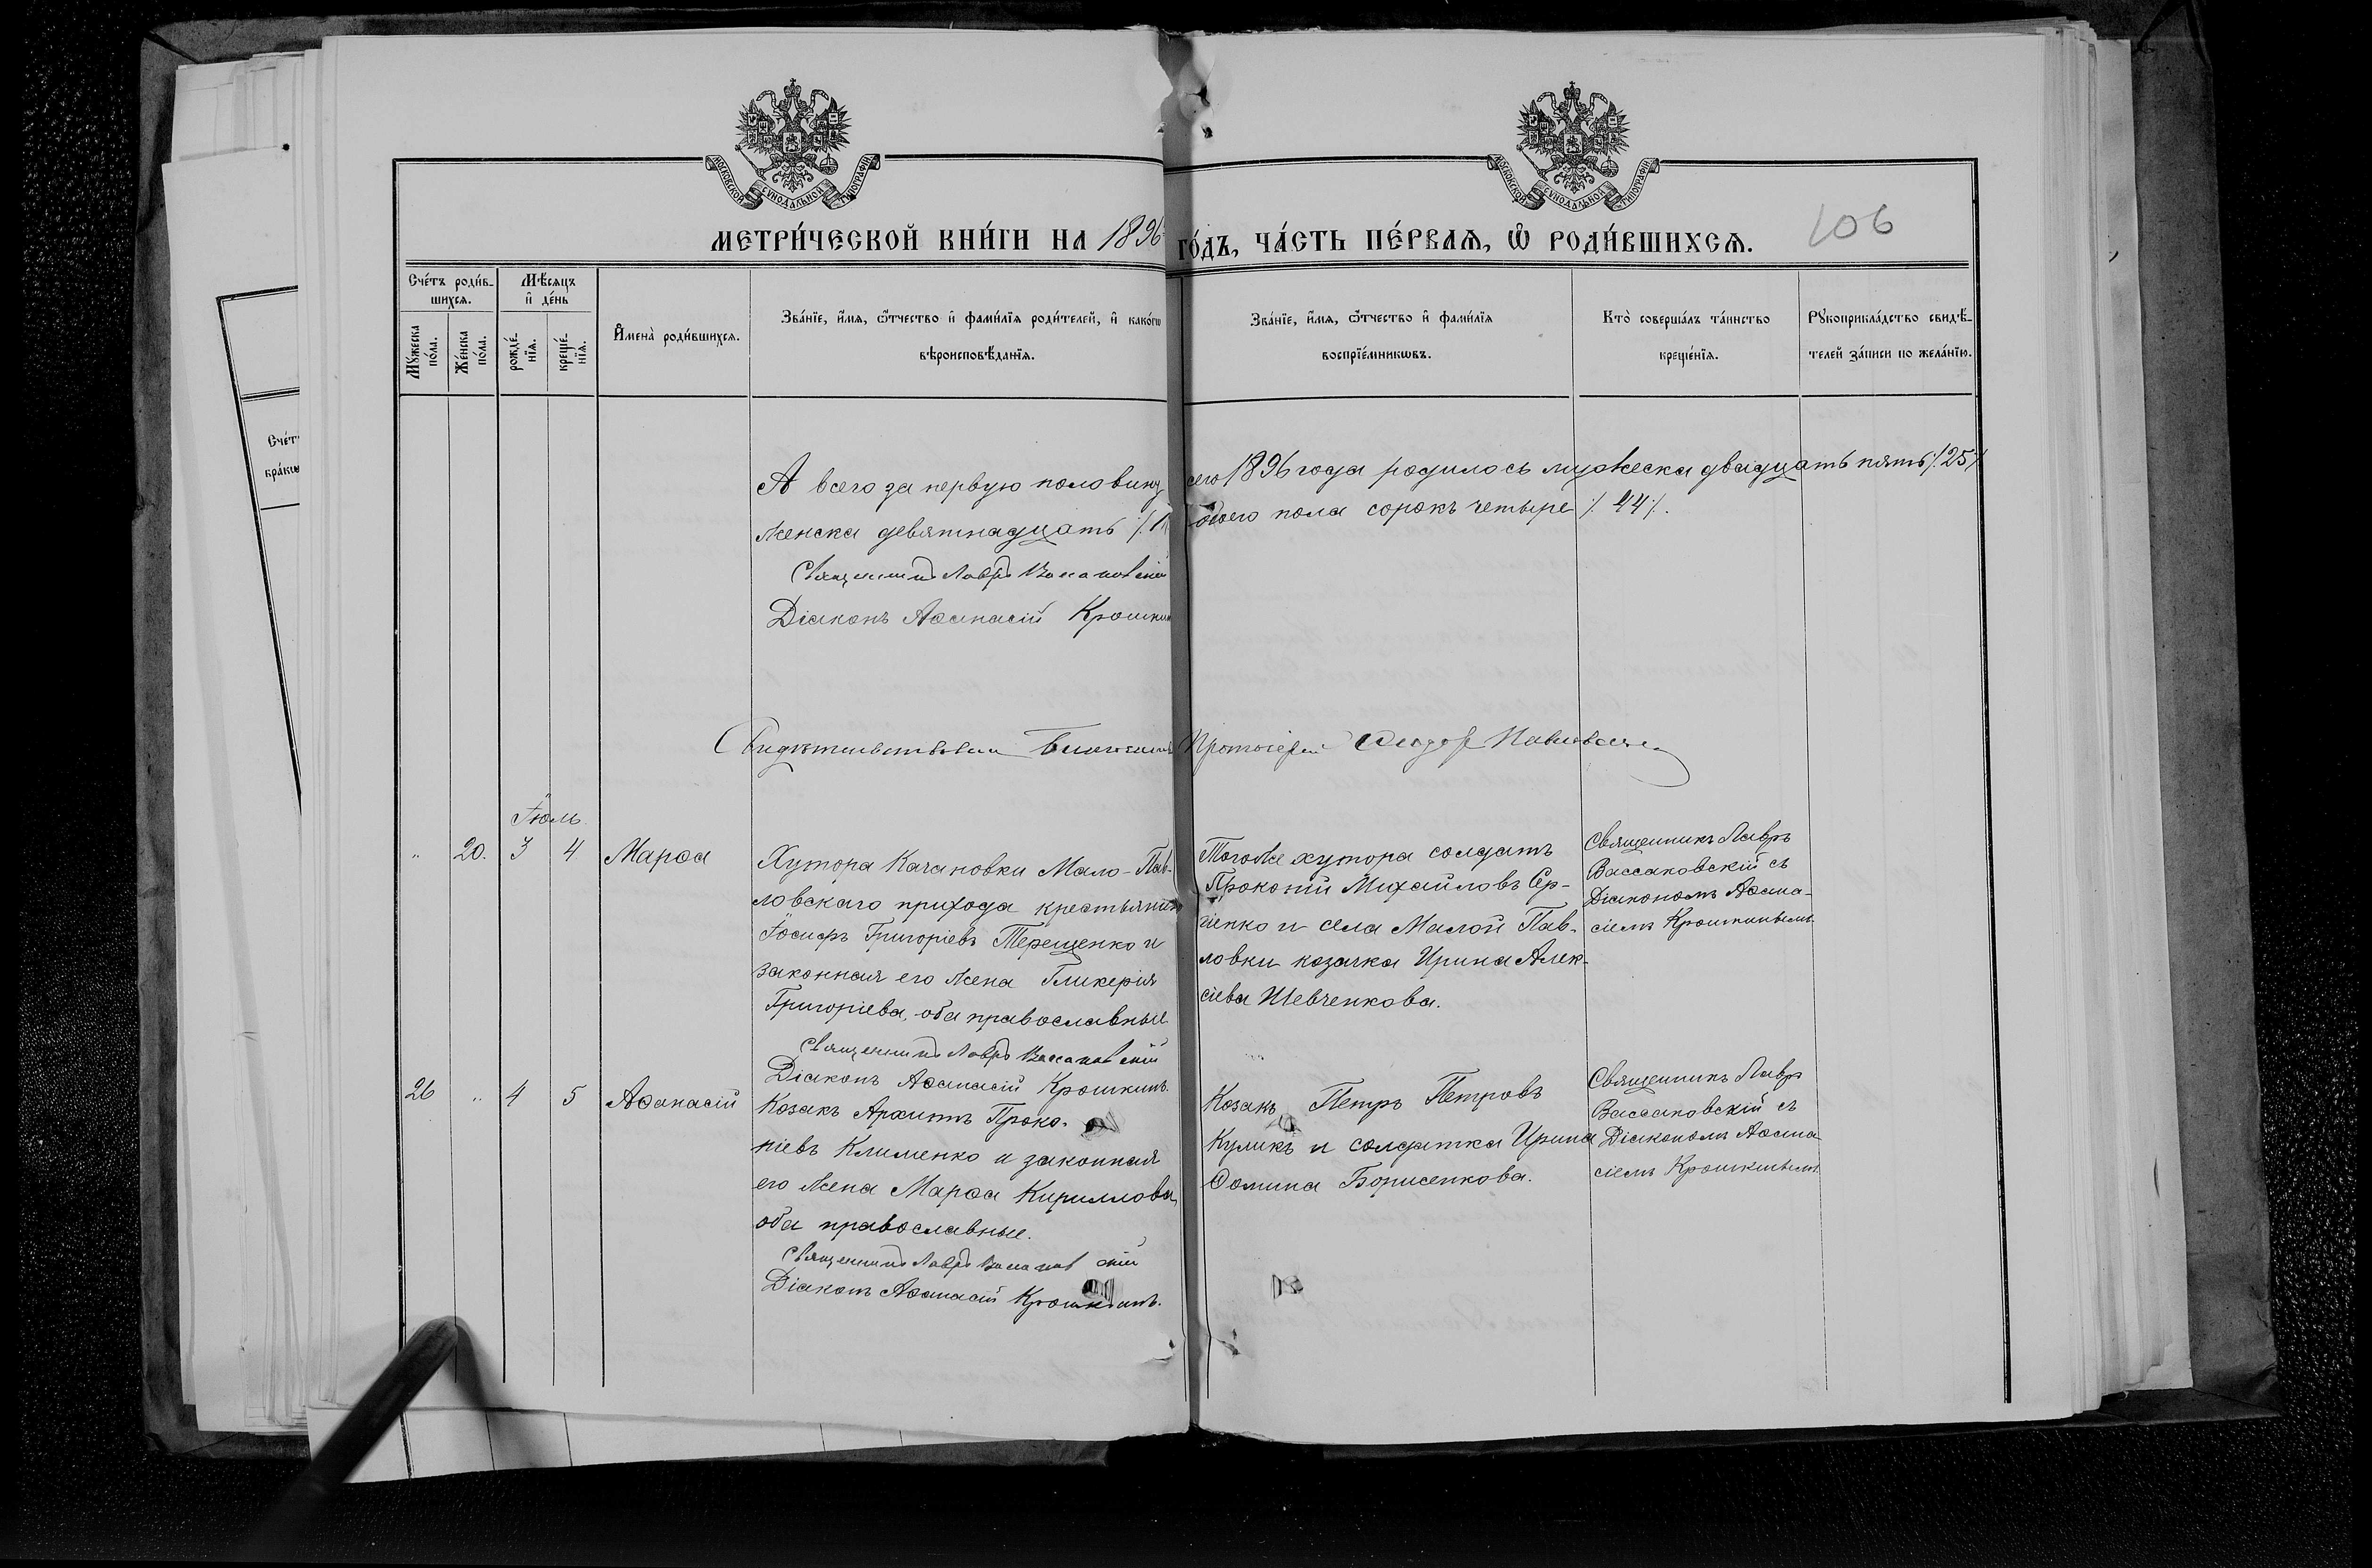 МОСКОВСКОЙ СУНОДАЛЬНОЙ ТИПОГРАФІИ
МОСКОВСКОЙ СУНОДАЛЬНОЙ ТИПОГРАФІИ
МЕТРИ́ЧЕСКОЙ КНИ́ГИ НА 1896 ГО́ДЪ, ЧА́СТЬ ПЕ́РВАѦ, Ѽ РОДИ́ВШИХСѦ.
106
Сче́тъ роди́в-
шихся.
Мѣсяцъ
и де́нь
Му́жеска
по́ла.
Же́нска
по́ла.
рожде́-
нїя.
креще́-
нїя.
Имена̀ роди́вшихся.
Зва́нїе, и́мя, ѻ́тчество и фами́лїя роди́телей, и како́гѡ
вѣроисповѣ́данїя.
Зва́нїе, и́мя, ѻ́тчество и фами́лїя
воспрїе́мникѡвъ.
Кто̀ соверша́лъ та́инство
креще́нїя.
Рꙋкоприкла́дство свидѣ́-
телей за́писи по жела́нїю.
Сче́т
бра́кѡ
А всего за первую половину сего 1896 года родилось мужеска двадцать пять /25/
женска девятнадцать обоего пола сорокъ четыре /44/.
Священникъ Лавръ Вассаковскій
Діаконъ Аѳанасій Крошкинъ
Свидѣтельствовалъ Благочинный Протоіерей
Іюль
" 20. 3 4 Марѳа
Хутора Качановки Мало-Пав-
ловскаго прихода крестьянинъ
Іосифъ Григоріевъ Терещенко и
законная его жена Гликерія
Григоріева, оба православные
Священникъ Лавръ Вассаковскій
Діаконъ Аѳанасій Крошкинъ.
Тогоже хутора солдатъ
Прокопій Михайловъ Сер-
гіенко и села Малой Пав-
ловки козачка Ирина Алек-
сіева Шевченкова.
Священникъ Лавръ
Вассаковскій съ
Діакономъ Аѳана-
сіемъ Крошкинымъ
26 " 4 5 Аѳанасій
Козакъ Архиппъ Проко-
піевъ Клименко и законная
его жена Марѳа Кириллова,
оба православные.
Священникъ Лавръ Вассаковскій
Діаконъ Аѳанасій Крошкинъ.
Козакъ Петръ Петровъ
Куликъ и солдатка Ирина
Ѳомина Борисенкова.
Священникъ Лавръ
Вассаковскій съ
Діакономъ Аѳана-
сіемъ Крошкинымъ